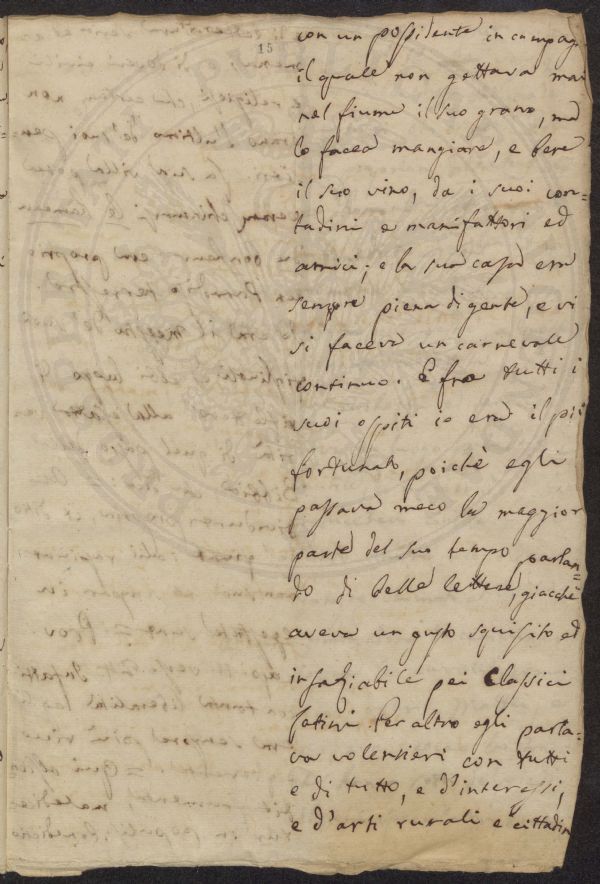 15
con un possidente in campag
il quale non gettava mai
nel fiume il suo grano, ma
lo facea mangiare, e bere
il suo vino, da i suoi con=
tadini e manifattori ed
amici; e la sua casa era
sempre piena di gente, e vi
si faceva un carnevale
continuo. E fra tutti i
suoi ospiti io era il più
fortunato, poichè egli
passava meco la maggior
parte del suo tempo parlan=
do di belle lettere, giacchè
aveva un gusto squisito ed
insaziabile pei Classici
latini. Per altro egli parla=
va volentieri con tutti
e di tutto, e d'interessi,
e d'arti rurali e cittadin